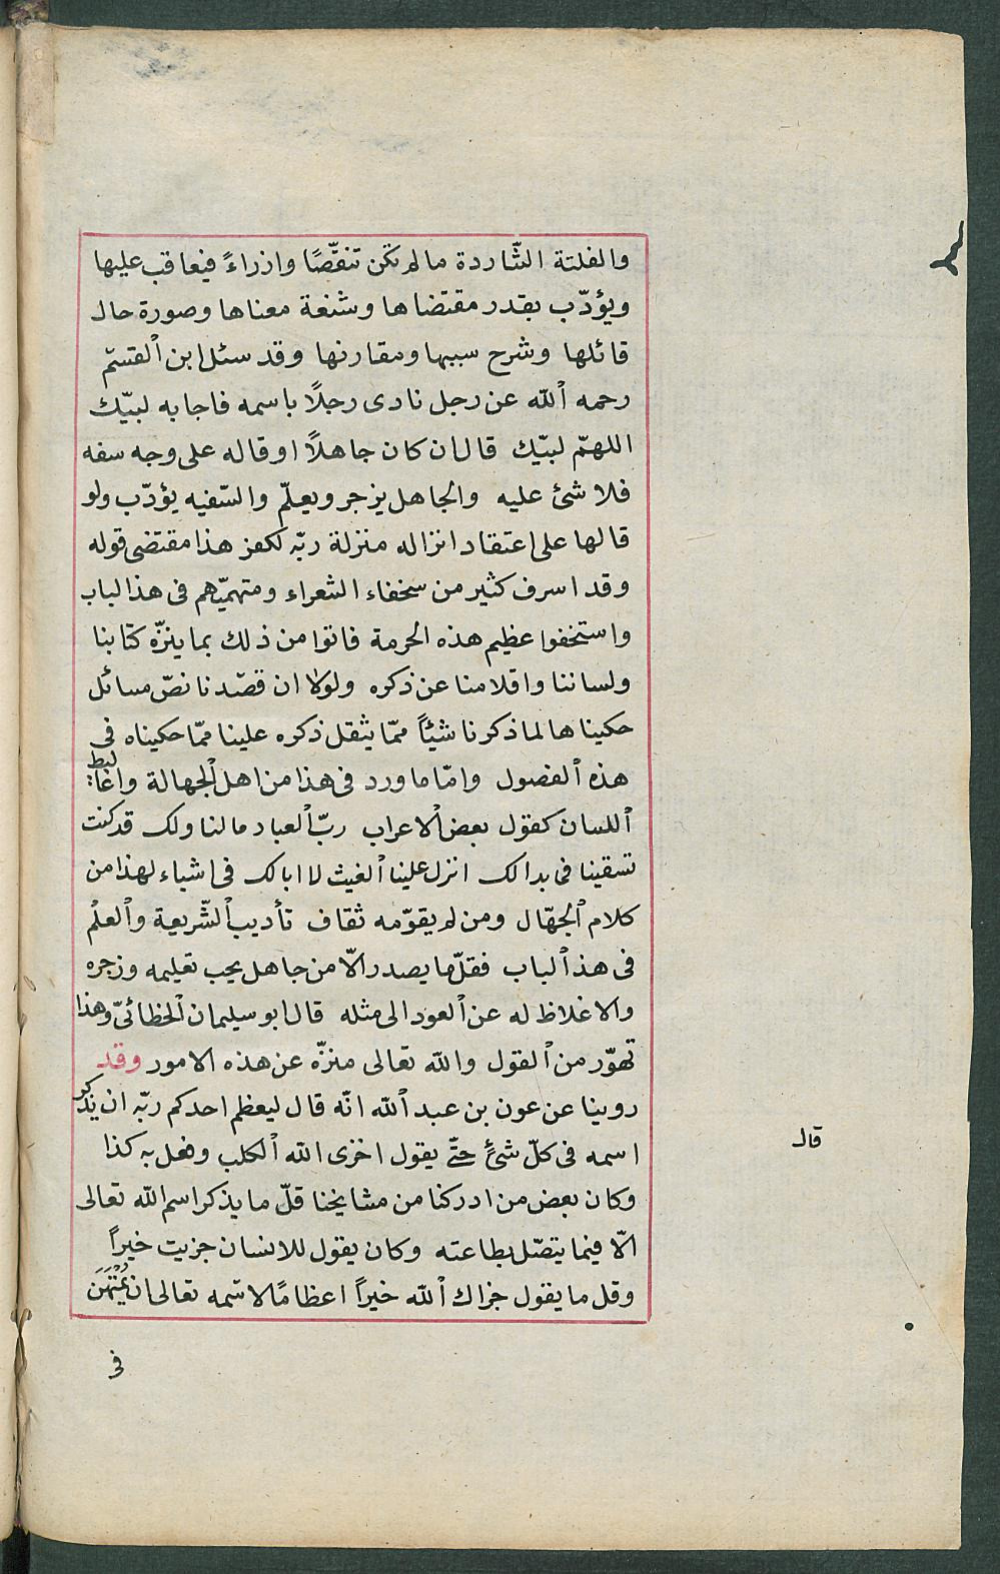 والفلتة الشّاردة ما لم تكن تنقّصًا وازراءً فيعاقب عليها
ويؤدّب بقدر مقتضاها وشنعة معناها وصورة حال
قائلها وشرح سببها ومقارنها وقد سئل ابن القسم
رحمه الله عن رجل نادى رجلًا باسمه فاجابه لبيّك
اللهمّ لبيّك قال ان كان جاهلًا او قاله على وجه سفه
فلا شئ عليه والجاهل يزجر ويعلّم والسّفيه يؤدّب ولو
قالها على اعتقاد انزاله منزلة ربّه لكفر هذا مقتضى قوله
وقد اسرف كثير من سخفاء الشعراء ومتهميّهم فى هذا الباب
واستخفوا عظيم هذه الحرمة فاتوا من ذلك بما ينزّه كتابنا
ولساننا واقلامنا عن ذكره ولولا ان قصدنا نصّ مسائل
حكيناها لما ذكرنا شيئًا ممّا يثقل ذكره علينا ممّا حكيناه فى
هذه الفصول وامّا ما ورد فى هذا من اهل الجهالة واغاليط
اللسان كقول بعض الاعراب ربّ العباد ما لنا ولك قد كنت
تسقينا فما بدا لك انزل علينا الغيث لا ابا لك فى اشباه لهذا من
كلام الجهّال ومن لم يقوّمه ثقاف تأديب الشّريعة والعلم
فى هذا الباب فقلّما يصدر الّا من جاهل يجب تعليمه وزجره
والاغلاظ له عن العود الى مثله قال ابو سليمان الخطائىّ وهذا
تهوّر من القول والله تعالى منزّه عن هذه الامور وقد
روينا عن عون بن عبد الله انّه قال ليعظم احدكم ربّه ان يذكر
اسمه فى كلّ شئ حتّى يقول اخزى الله الكلب وفعل به كذا
قال
وكان بعض من ادركنا من مشايخنا قلّ ما يذكر اسم الله تعالى
الّا فيما يتصّل بطاعته وكان يقول للانسان جزيت خيراً
وقل ما يقول جزاك الله خيراً اعظامًا لاسمه تعالى ان يُمْتَهَنَ
فى